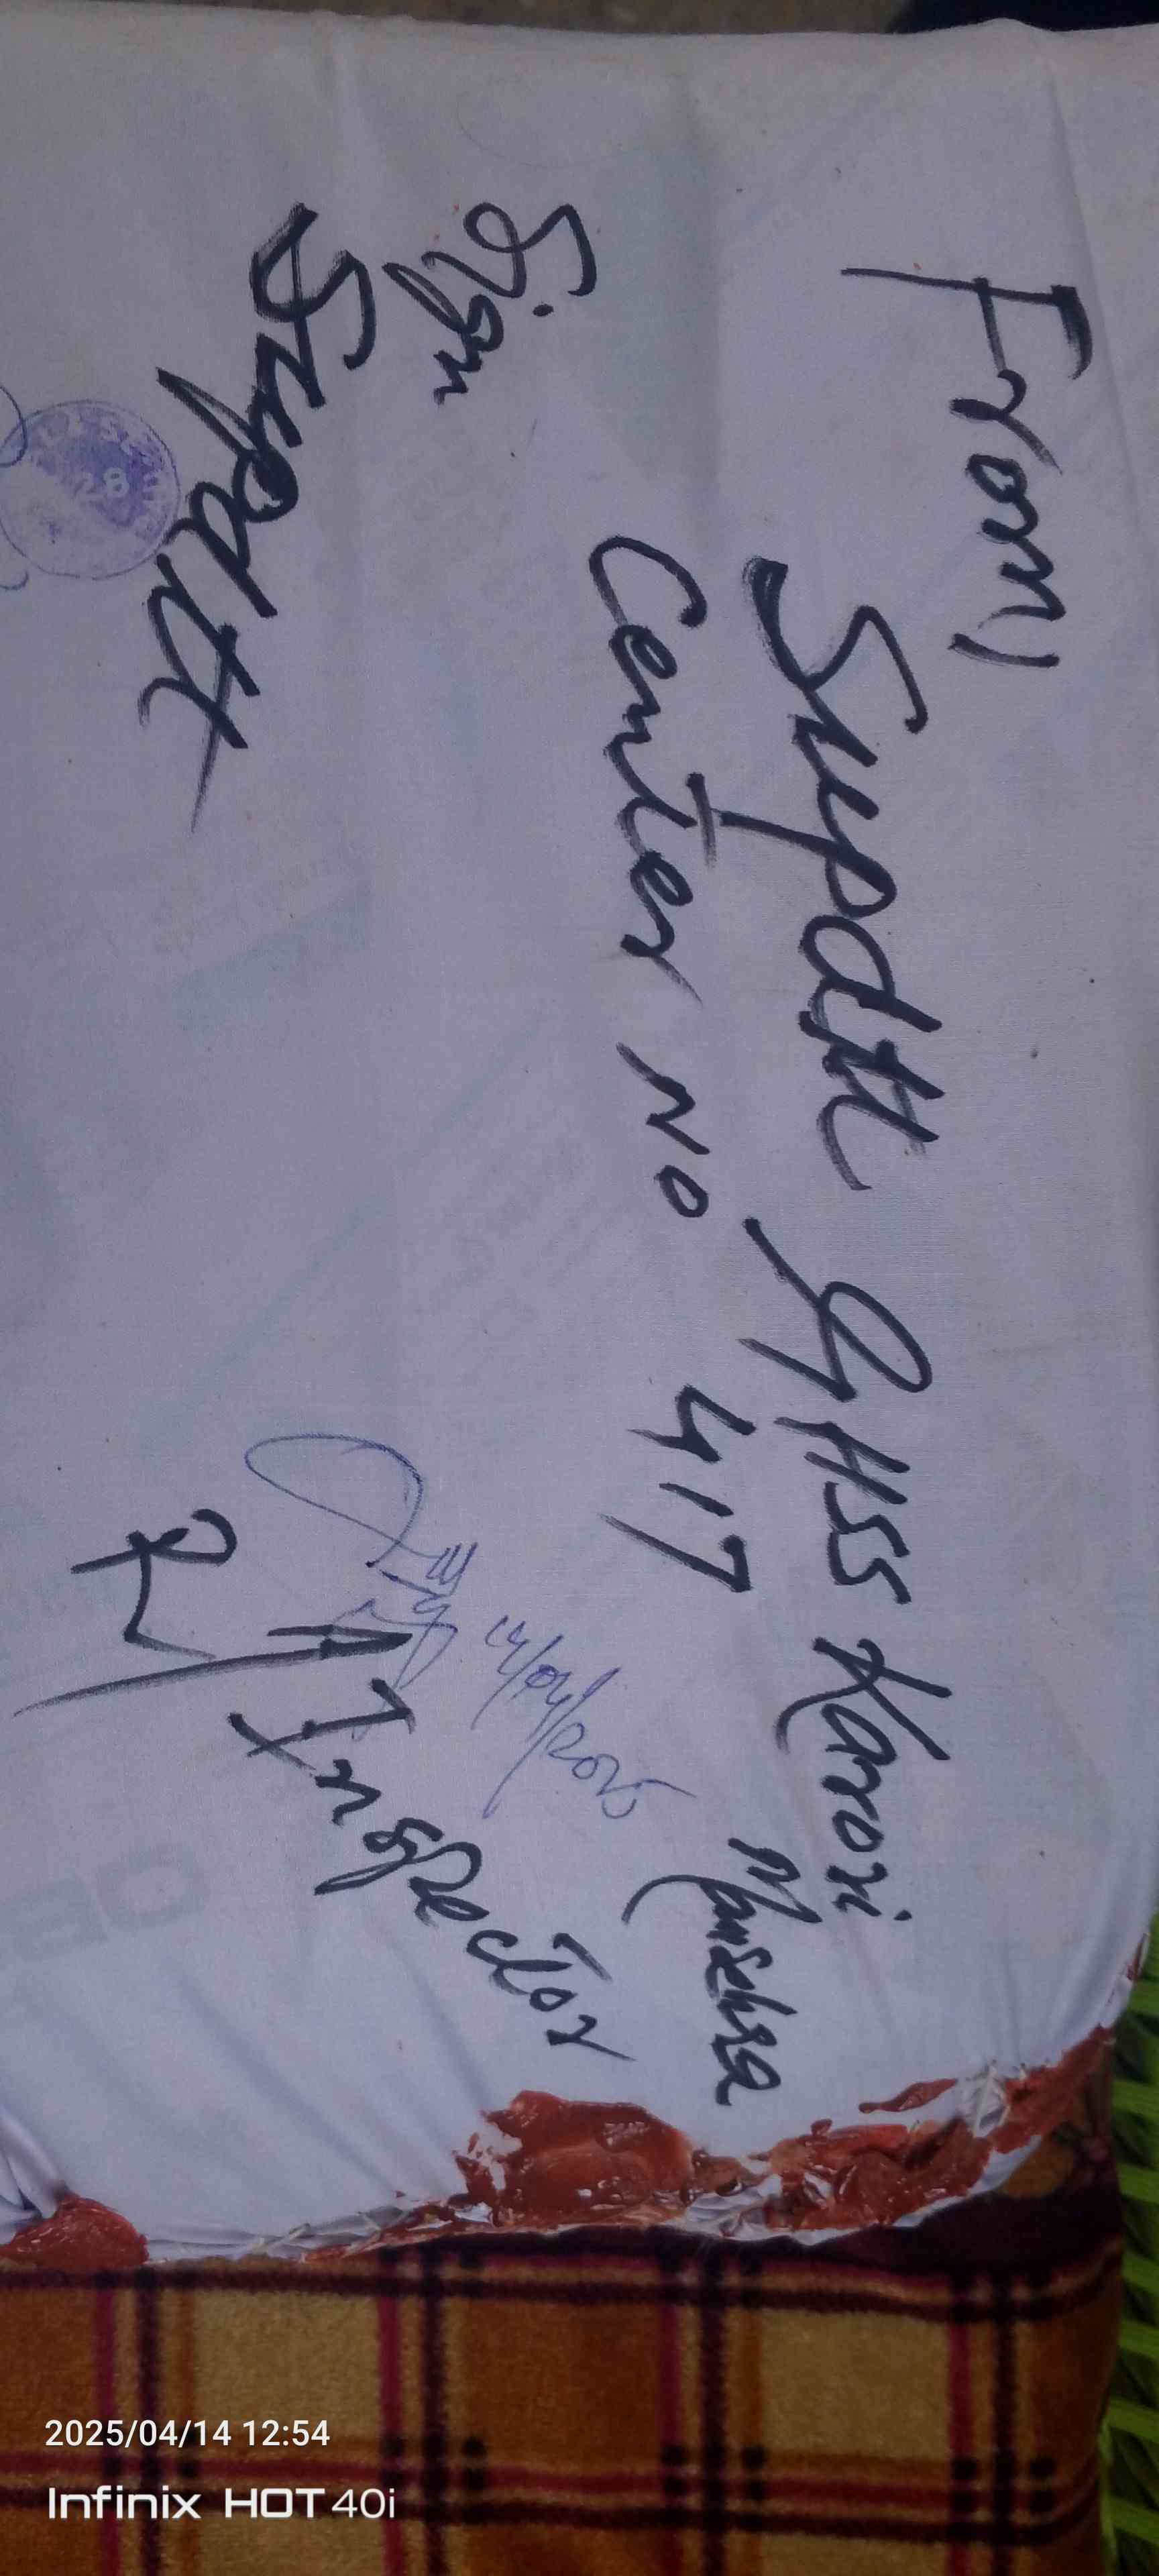 From
Supdtt GHSS Karori
Mansehra
Center No 417
Sign
Supdtt
13/04/2025
Inspector
28
2025/04/14 12:54
Infinix HOT 40i